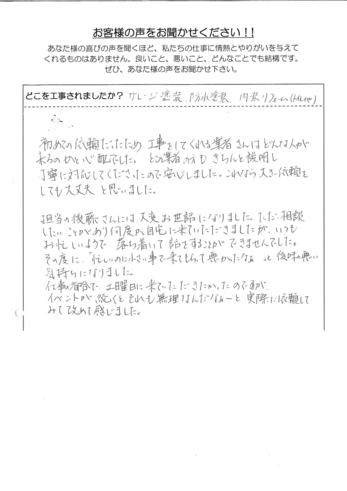 お客様の声をお聞かせください！！
あなた様の喜びの声を聞くほど、私たちの仕事に情熱とやりがいを与えて
くれるものはありません。良いこと、悪いこと、どんなことでも結構です。
ぜひ、あなた様の声をお聞かせ下さい。
どこを工事されましたか？ ガレージ塗装、防水塗装、内装リフォーム
初めての依頼だったため 工事をしてくれる業者さんはどんな人が
来るのかと心配でした。どの業者の方も きちんと説明し
丁寧に対応してくださったので安心しました。これなら大きい依頼を
しても大丈夫 と思いました。
担当の後藤さんには、大変お世話になりました。ただ、相談
したいことがあり何度か自宅に来ていただきましたが、いつも
お忙しいようで 落ち着いて話をすることができませんでした。
その度に、「忙しいのに小さい事で来てもらって悪かったなぁ」と後味の悪い
気持ちになりました。
仕事の都合で 土曜日に来ていただきたかったのですが、
イベントが続くとそれも無理なんだなぁーと 実際に依頼して
みて改めて感じました。